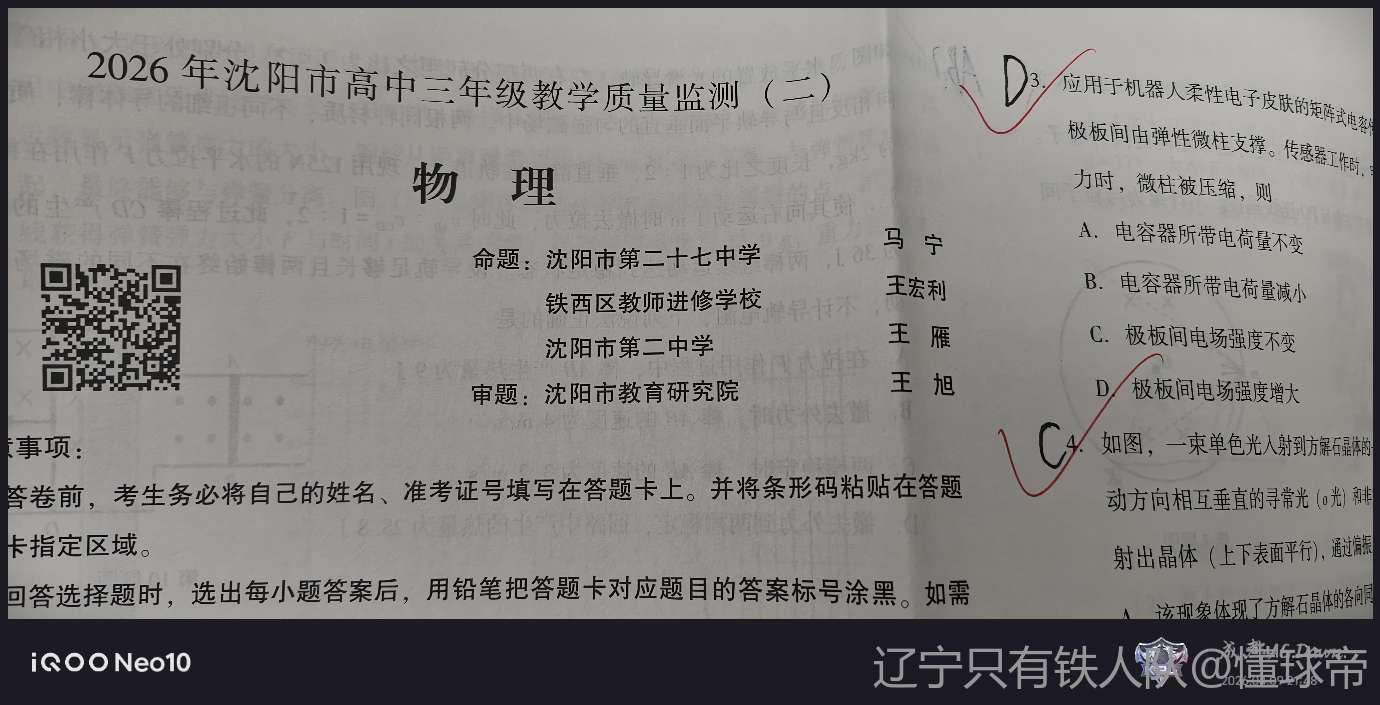 2026年沈阳市高中三年级教学质量监测（二）
物 理
命题：沈阳市第二十七中学 马 宁
铁西区教师进修学校 王宏利
沈阳市第二中学 王 雁
审题：沈阳市教育研究院 王 旭
事项：
答卷前，考生务必将自己的姓名、准考证号填写在答题卡上。并将条形码粘贴在答题
卡指定区域。
回答选择题时，选出每小题答案后，用铅笔把答题卡对应题目的答案标号涂黑。如需
D 3. 应用于机器人柔性电子皮肤的矩阵式电容
极板间由弹性微柱支撑。传感器工作时，
力时，微柱被压缩，则
A. 电容器所带电荷量不变
B. 电容器所带电荷量减小
C. 极板间电场强度不变
D. 极板间电场强度增大
C 4. 如图，一束单色光入射到方解石晶体的
动方向相互垂直的寻常光（o光）和非
射出晶体（上下表面平行），通过偏振
A. 该现象体现了方解石晶体的各向同
iQOO Neo10
辽宁只有铁人队@懂球帝